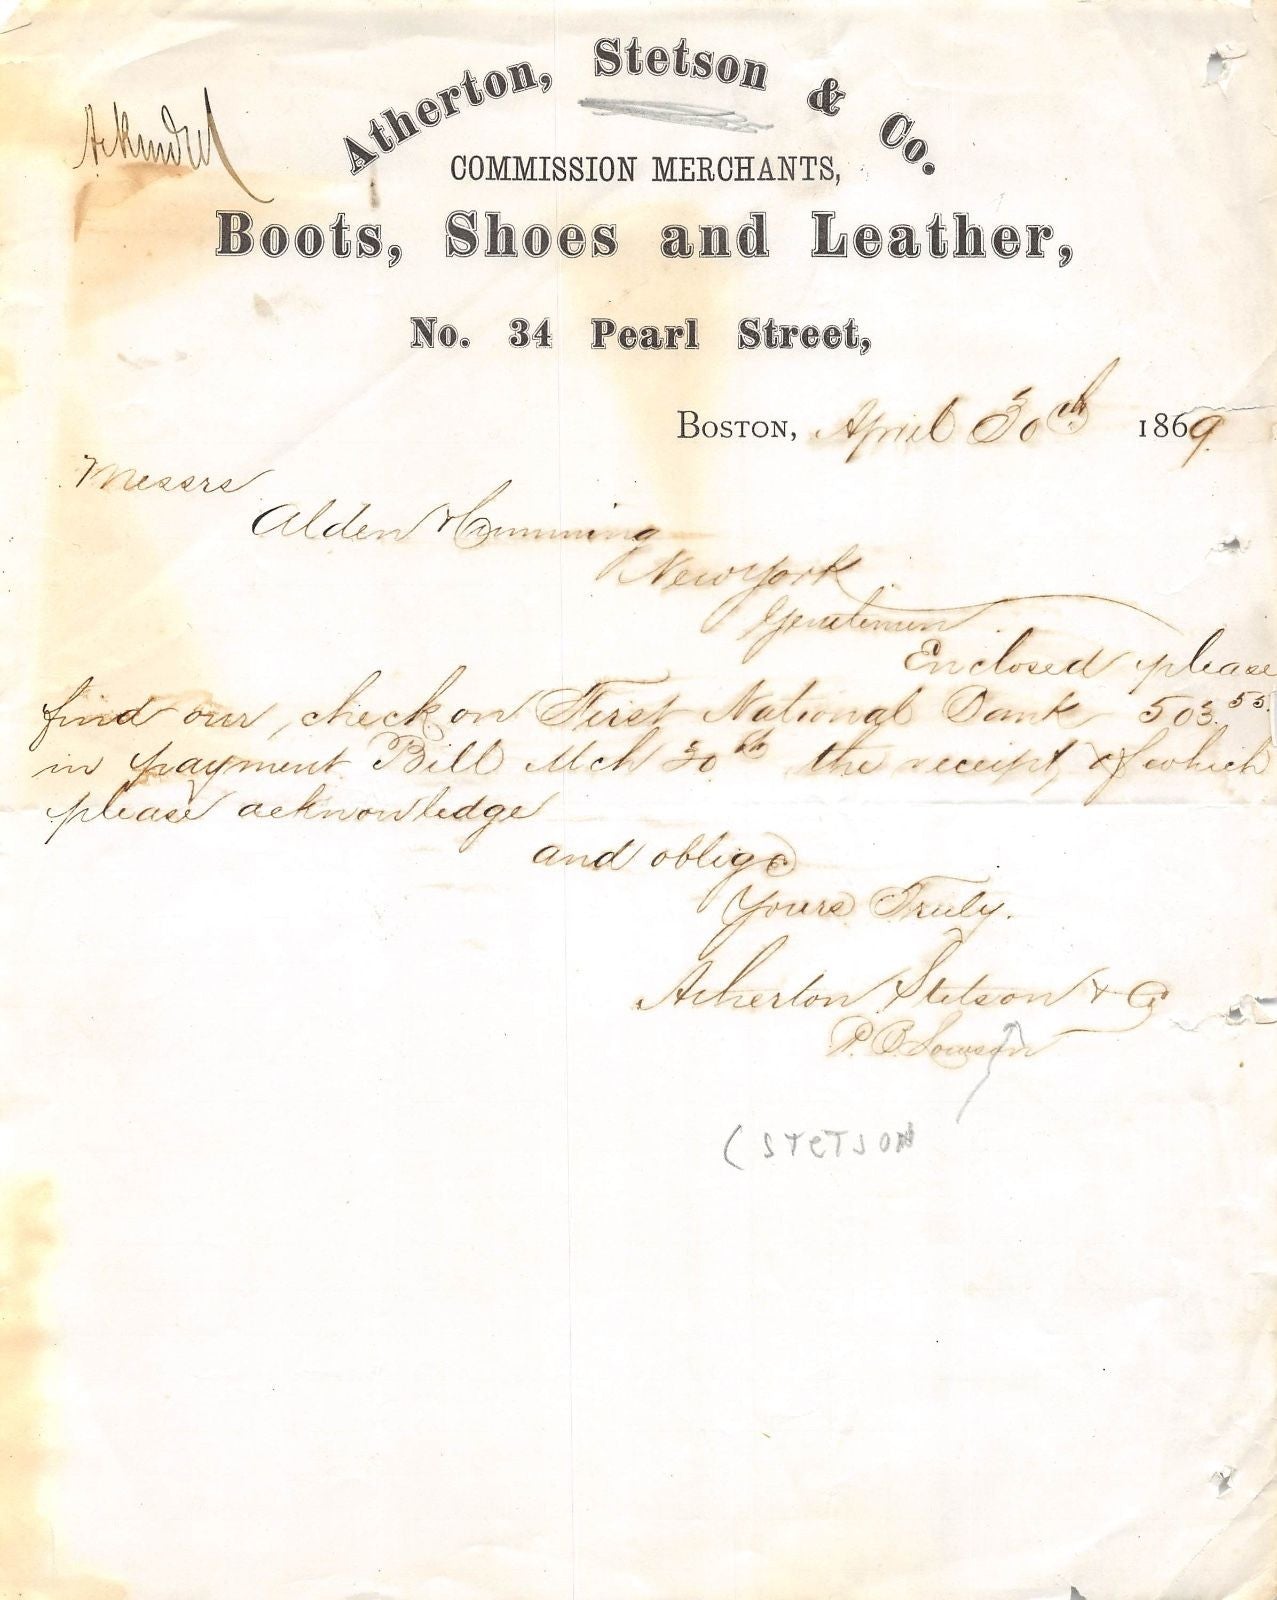 Atherton, Stetson & Co.
COMMISSION MERCHANTS,
Boots, Shoes and Leather,
No. 34 Pearl Street,
Boston, April 30th 1869
Messrs
Alden & Cumming
New York
Gentlemen
Enclosed please
find our check on First National Bank 503.55
in payment Bill Mch 30th the receipt of which
please acknowledge
and oblige
Yours Truly.
Atherton Stetson & Co
(STETSON